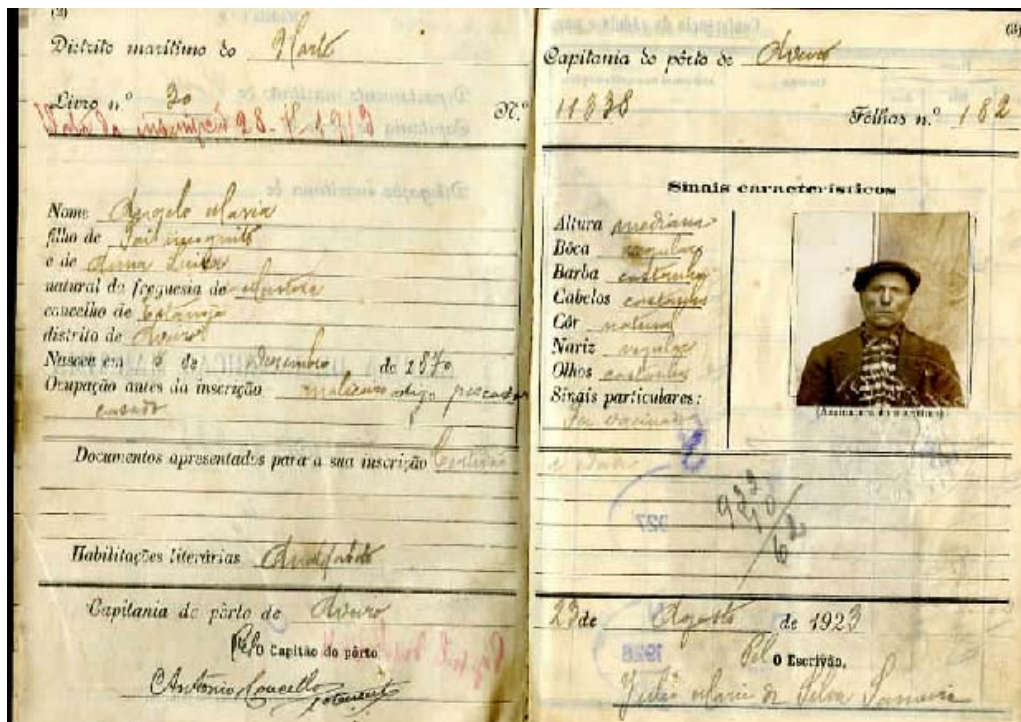 (2)
Distrito marítimo do Norte
Livro n.º 30
Data da inscrição 28-
Nome Angelo Maria
filho de Pai incognito
e de Anna Luisa
natural da freguesia de Murtosa
concelho de Estarreja
distrito de Aveiro
Nasceu em 6 de Dezembro de 1870
Ocupação antes da inscrição digo pescador
casado
Documentos apresentados para a sua inscrição Certidão
Habilitações literárias Analfabeto
Capitania do pôrto de Aveiro
Pelo O Capitão do pôrto
Antonio Coucello
tenente
(3)
Capitania do pôrto de Aveiro
N.º 11338 Fôlhas n.º 182
Sinais característicos
Altura mediana
Bôca regular
Barba castanha
Cabelos castanhos
Côr natural
Nariz regular
Olhos castanhos
Sinais particulares:
Foi vacinado
(Assinatura do marítimo)
927
922
10
62
23 de Agosto de 1923
1928
Pel O Escrivão,
Julio Maria da Silva